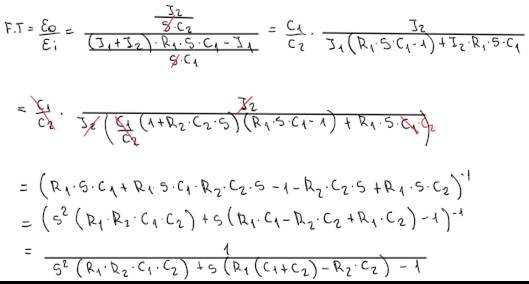 F.T = Eo/Ei = (I2/(S·C2)) / (((I1+I2)·R1·S·C1-I1)/(S·C1)) = C1/C2 · I2/(I1(R1·S·C1-1)+I2·R1·S·C1)
= C1/C2 · I2/(I2(C1/C2(1+R2·C2·S)(R1·S·C1-1)+R1·S·C1·C2))
= (R1·S·C1+R1·S·C1·R2·C2·S-1-R2·C2·S+R1·S·C2)^-1
= (S²(R1·R2·C1·C2)+S(R1·C1-R2·C2+R1·C2)-1)^-1
= 1/(S²(R1·R2·C1·C2)+S(R1(C1+C2)-R2·C2)-1)